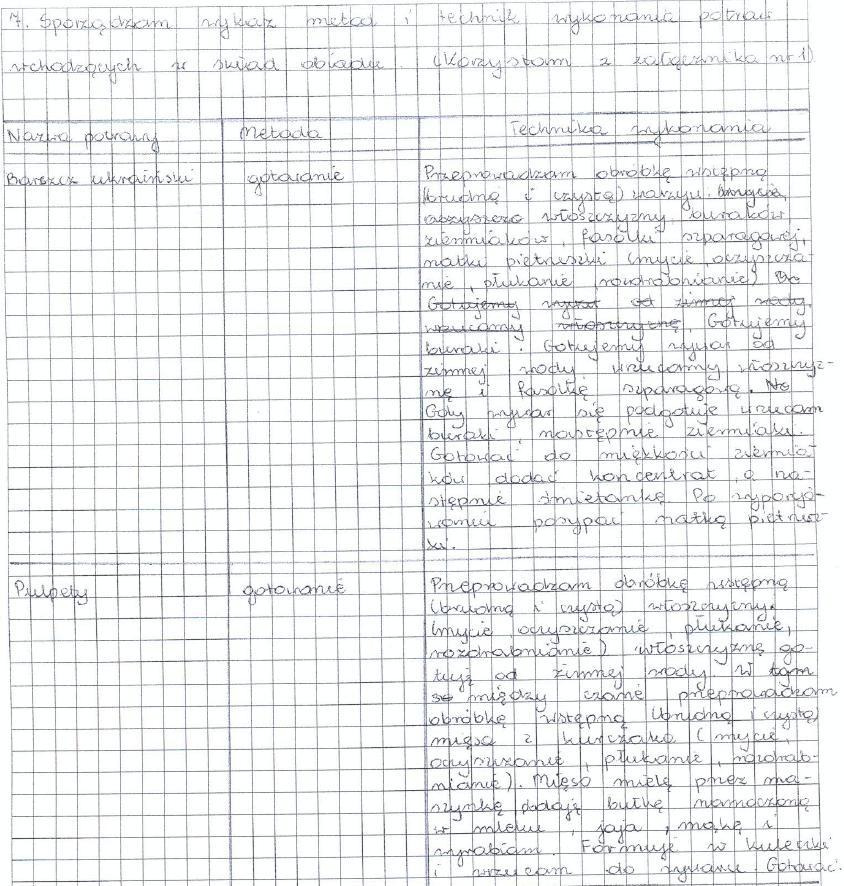 7. Sporządzam wykaz metod i technik wykonania potraw
wchodzących w skład obiadu. (Korzystam z załącznika nr 1)
Nazwa potrawy Metoda Technika wykonania
Barszcz ukraiński gotowanie Przeprowadzam obróbkę wstępną
(brudną i czystą) warzyw.
włoszczyzny, buraków,
ziemniaków, fasolki szparagowej,
natki pietruszki (mycie, oczyszcza-
nie, płukanie, rozdrabnianie)
Gotujemy wywar od zimnej wody,
wrzucamy włoszczyznę. Gotujemy
buraki. Gotujemy wywar od
zimnej wody, wrzucamy włoszczyz-
nę i fasolkę szparagową. Na
Gdy wywar się podgotuje wrzucam
buraki, następnie ziemniaki.
Gotować do miękkości ziemnia
ków dodać koncentrat, a na-
stępnie śmietankę. Po
posypać natką pietrusz-
ki.
Pulpety gotowanie Przeprowadzam obróbkę wstępną
(brudną i czystą) włoszczyzny.
(mycie, oczyszczanie, płukanie,
rozdrabnianie) włoszczyznę go-
tuję od zimnej wody. W tam
se między czasie przeprowadzam
obróbkę wstępną (brudną i czystą)
mięsa z kurczaka (mycie,
oczyszczanie, płukanie, rozdrab-
nianie). Mięso mielę przez ma-
szynkę dodaję bułkę namoczoną
w mleku, jaja, mąkę i
wyrabiam. Formuję w kuleczki
i wrzucam do wywaru. Gotować.